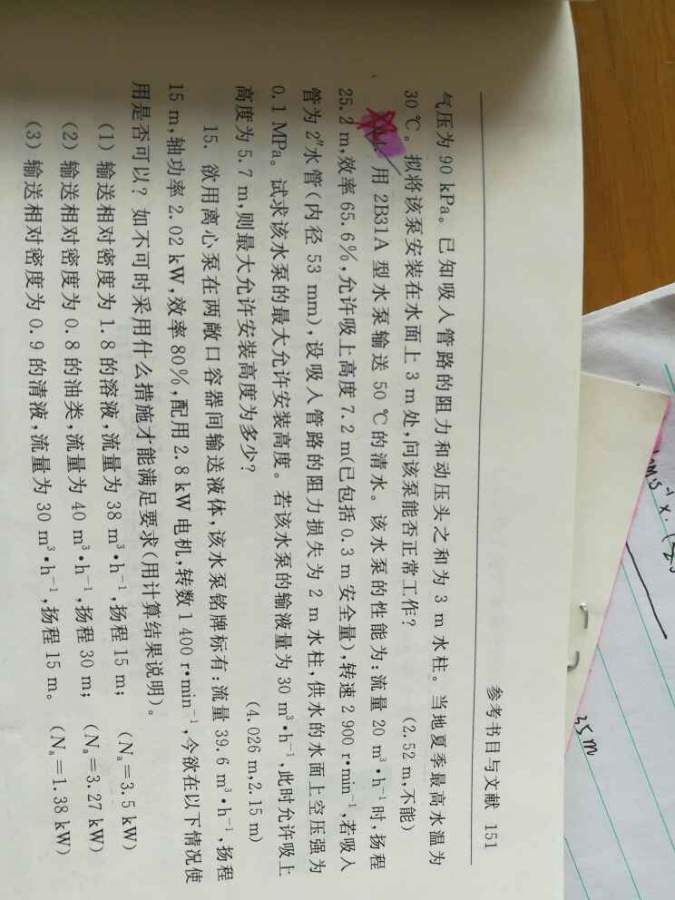 参考书目与文献 151
气压为 90 kPa。已知吸入管路的阻力和动压头之和为 3 m 水柱。当地夏季最高水温为
30 ℃。拟将该泵安装在水面上 3 m 处,问该泵能否正常工作? (2.52 m,不能)
14. 用 2B31A 型水泵输送 50 ℃的清水。该水泵的性能为:流量 20 m³·h⁻¹时,扬程
25.2 m,效率 65.6%,允许吸上高度 7.2 m(已包括 0.3 m 安全量),转速 2 900 r·min⁻¹,若吸入
管为 2″水管(内径 53 mm),设吸入管路的阻力损失为 2 m 水柱,供水的水面上空压强为
0.1 MPa。试求该水泵的最大允许安装高度。若该水泵的输液量为 30 m³·h⁻¹,此时允许吸上
高度为 5.7 m,则最大允许安装高度为多少? (4.026 m,2.15 m)
15. 欲用离心泵在两敞口容器间输送液体,该水泵铭牌标有:流量 39.6 m³·h⁻¹,扬程
15 m,轴功率 2.02 kW,效率 80%,配用 2.8 kW 电机,转数 1 400 r·min⁻¹,今欲在以下情况使
用是否可以?如不可时采用什么措施才能满足要求(用计算结果说明)。
(1) 输送相对密度为 1.8 的溶液,流量为 38 m³·h⁻¹,扬程 15 m; (Nₐ=3.5 kW)
(2) 输送相对密度为 0.8 的油类,流量为 40 m³·h⁻¹,扬程 30 m; (Nₐ=3.27 kW)
(3) 输送相对密度为 0.9 的清液,流量为 30 m³·h⁻¹,扬程 15 m。 (Nₐ=1.38 kW)
35m